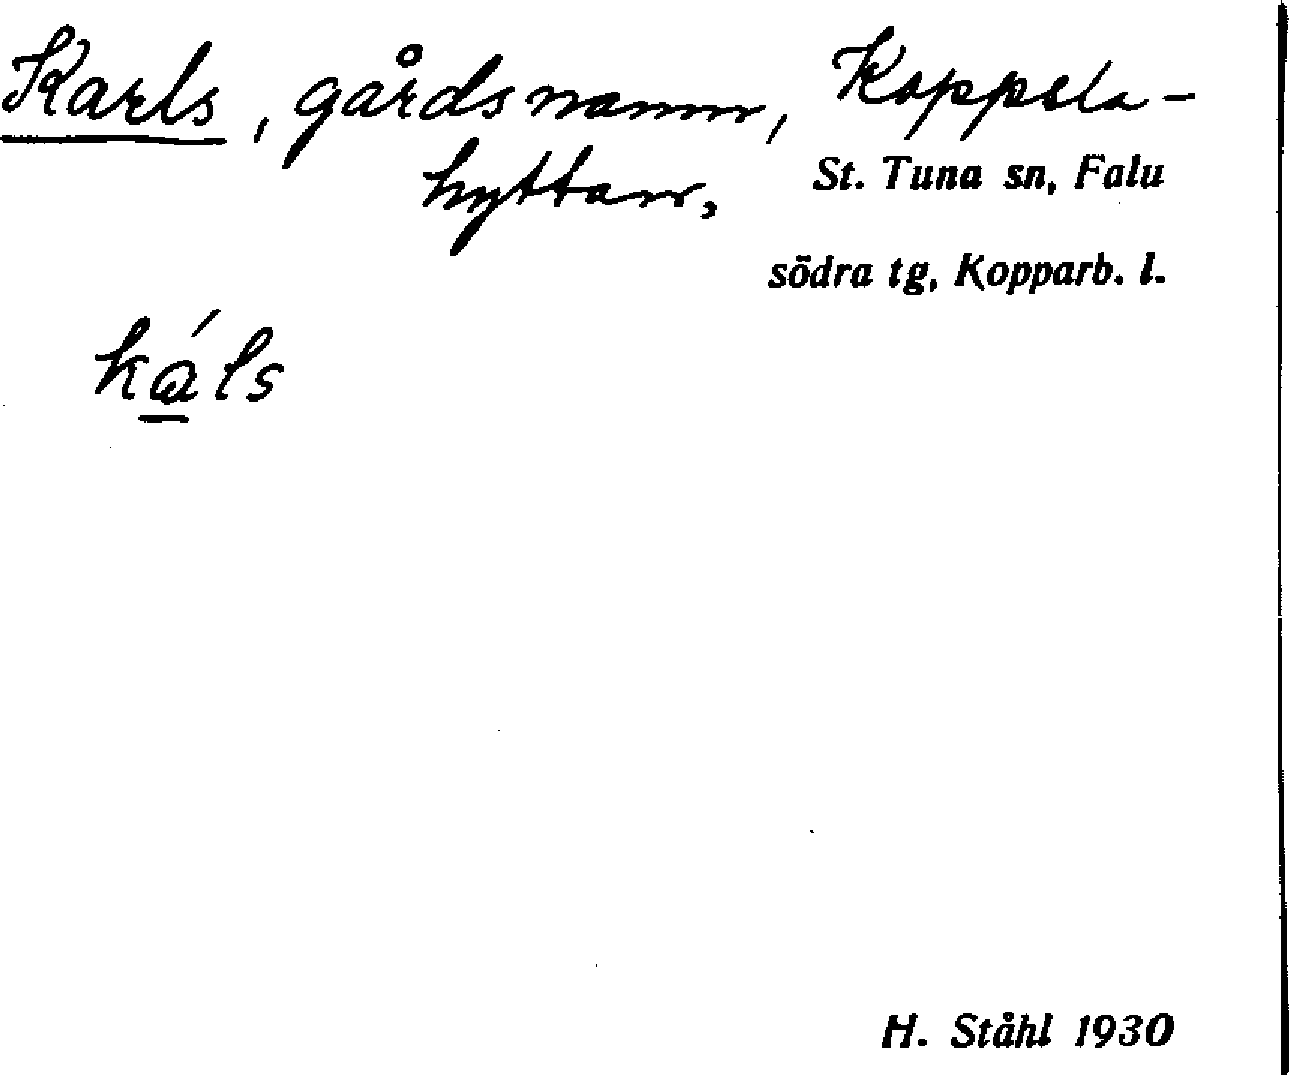 Karls, gårdsnamn, Koppsla-
hyttan, St. Tuna sn, Falu
södra tg, Kopparb. l.
ká̱ls
H. Ståhl 1930